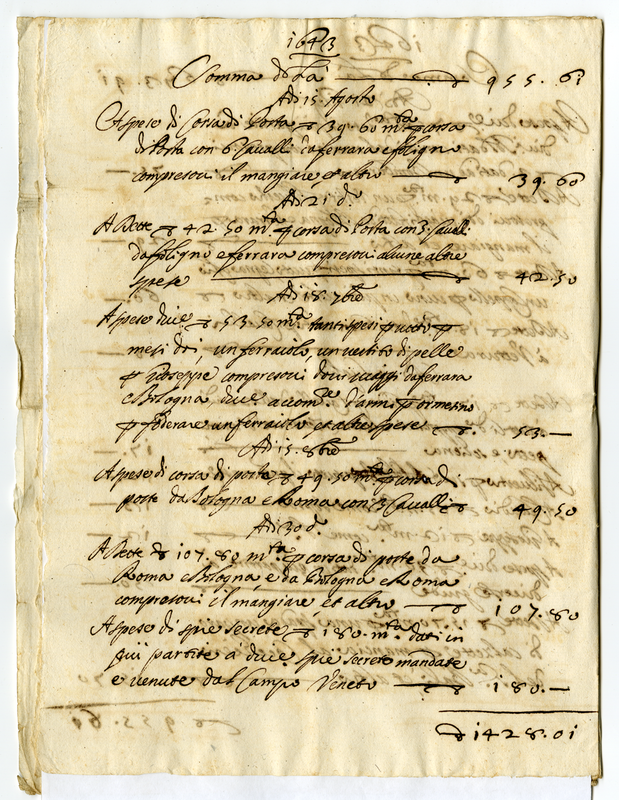 1643
Somma di là 955. 61
Adi 15. Agosto
A spese di Corsa di Posta 39. 60 m.ta p corsa
di Posta con 6. Cavalli da ferrara e foligno
compresoui il mangiare, et altro 39. 60
Adi 21 d.o
A dette 42. 50 m.ta p corsa di Posta con 3. Cavalli
da foligno e ferrara compresoui alcune altre
spese 42. 50
Adi 18. 7bre
A spese diue. 53. 50 m.ta tanti spesi p uitto p
mesi doi, un ferraiolo, un uestito di pelle
p Gioseppe compresoui doui uiaggi da ferrara
e Bologna, diue. accom.re d'armi p ormesino
p foderare un ferraiolo et altre spese 53. —
Adi 15. 8bre
A spese di corsa di poste 49. 50 m.ta p corsa di
poste da Bologna e Roma con Caualli 49. 50
Adi 30 d.o
A dette 107. 80 m.ta p corsa di poste da
Roma e Bologna, e da Bologna e Roma
compresoui il mangiare et altro 107. 80
A spese di spie secrete 180. m.ta dati in
più partite à diue. spie secrete mandate
e uenute dal Campo Veneto 180. —
1428. 01